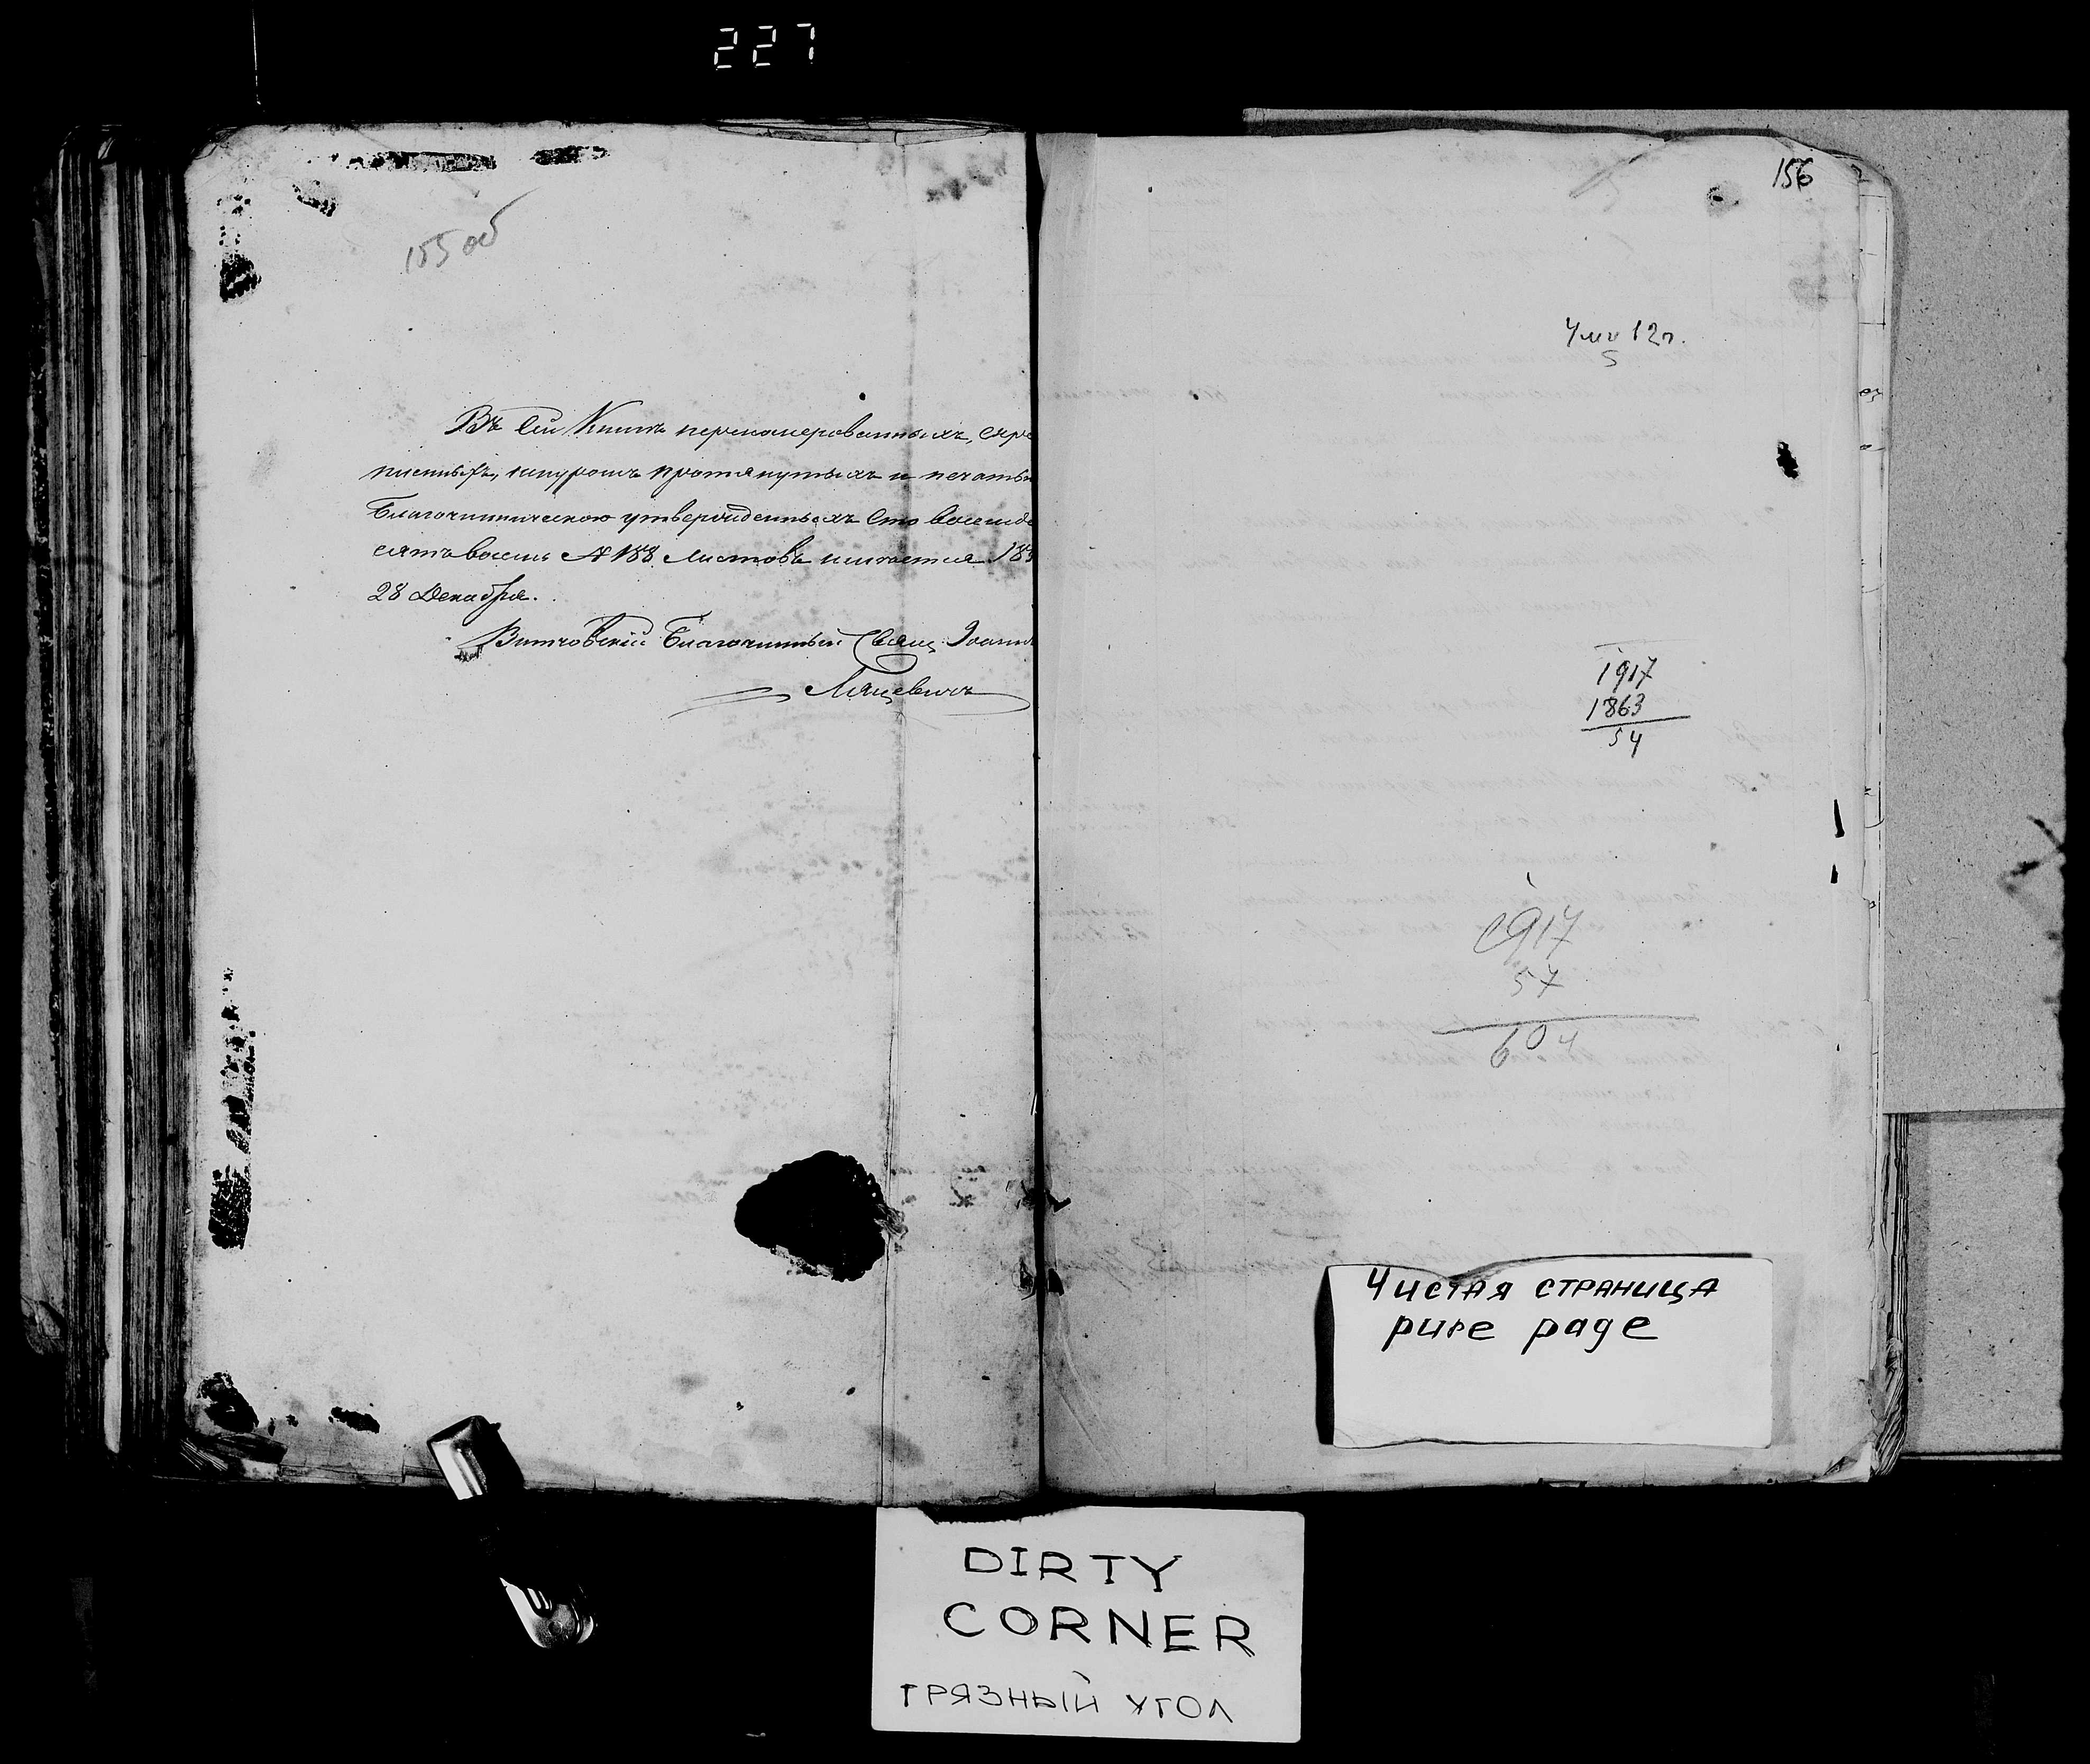 227
155 об
Въ сей Книгѣ перенумерованныхъ, скрѣ
пленныхъ, шнуромъ протянутыхъ и печатью
Благочинническою утвержденныхъ Сто восемьде
сятъ восемь № 188 листовъ имѣется 18
28 Декабря.
Витковскій Благочинный Свящ Іоаннъ
Ляцевичъ
156
12
5
1917
1863
54
1917
57
604
Чистая страница
pure page
DIRTY
CORNER
грязный угол